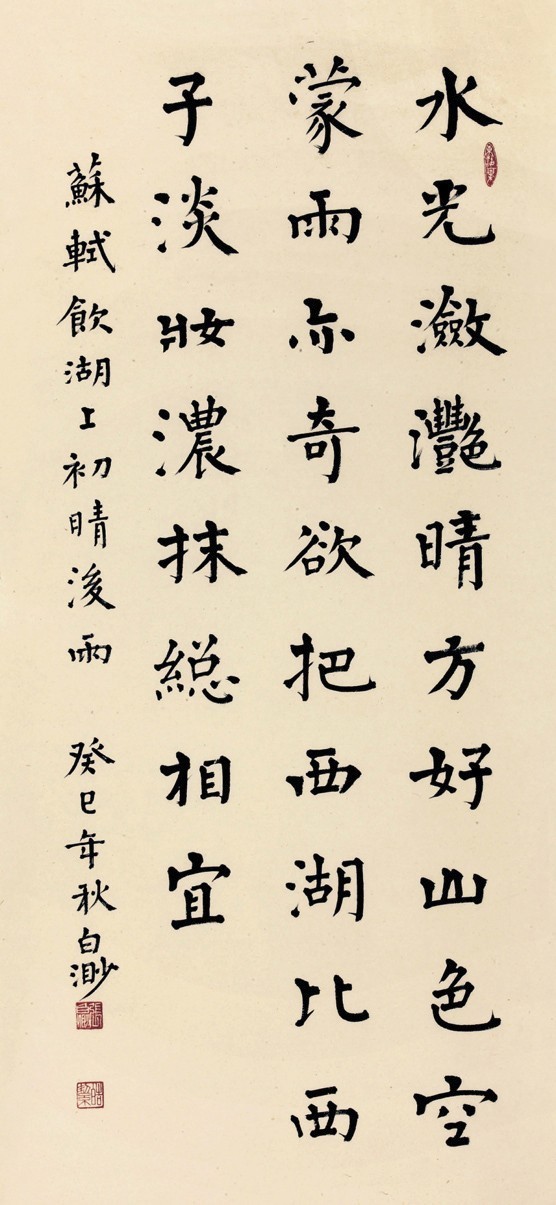 水光瀲灩晴方好山色空
蒙雨亦奇欲把西湖比西
子淡妝濃抹緫相宜
蘇軾飲湖上初晴後雨 癸巳年秋白渺